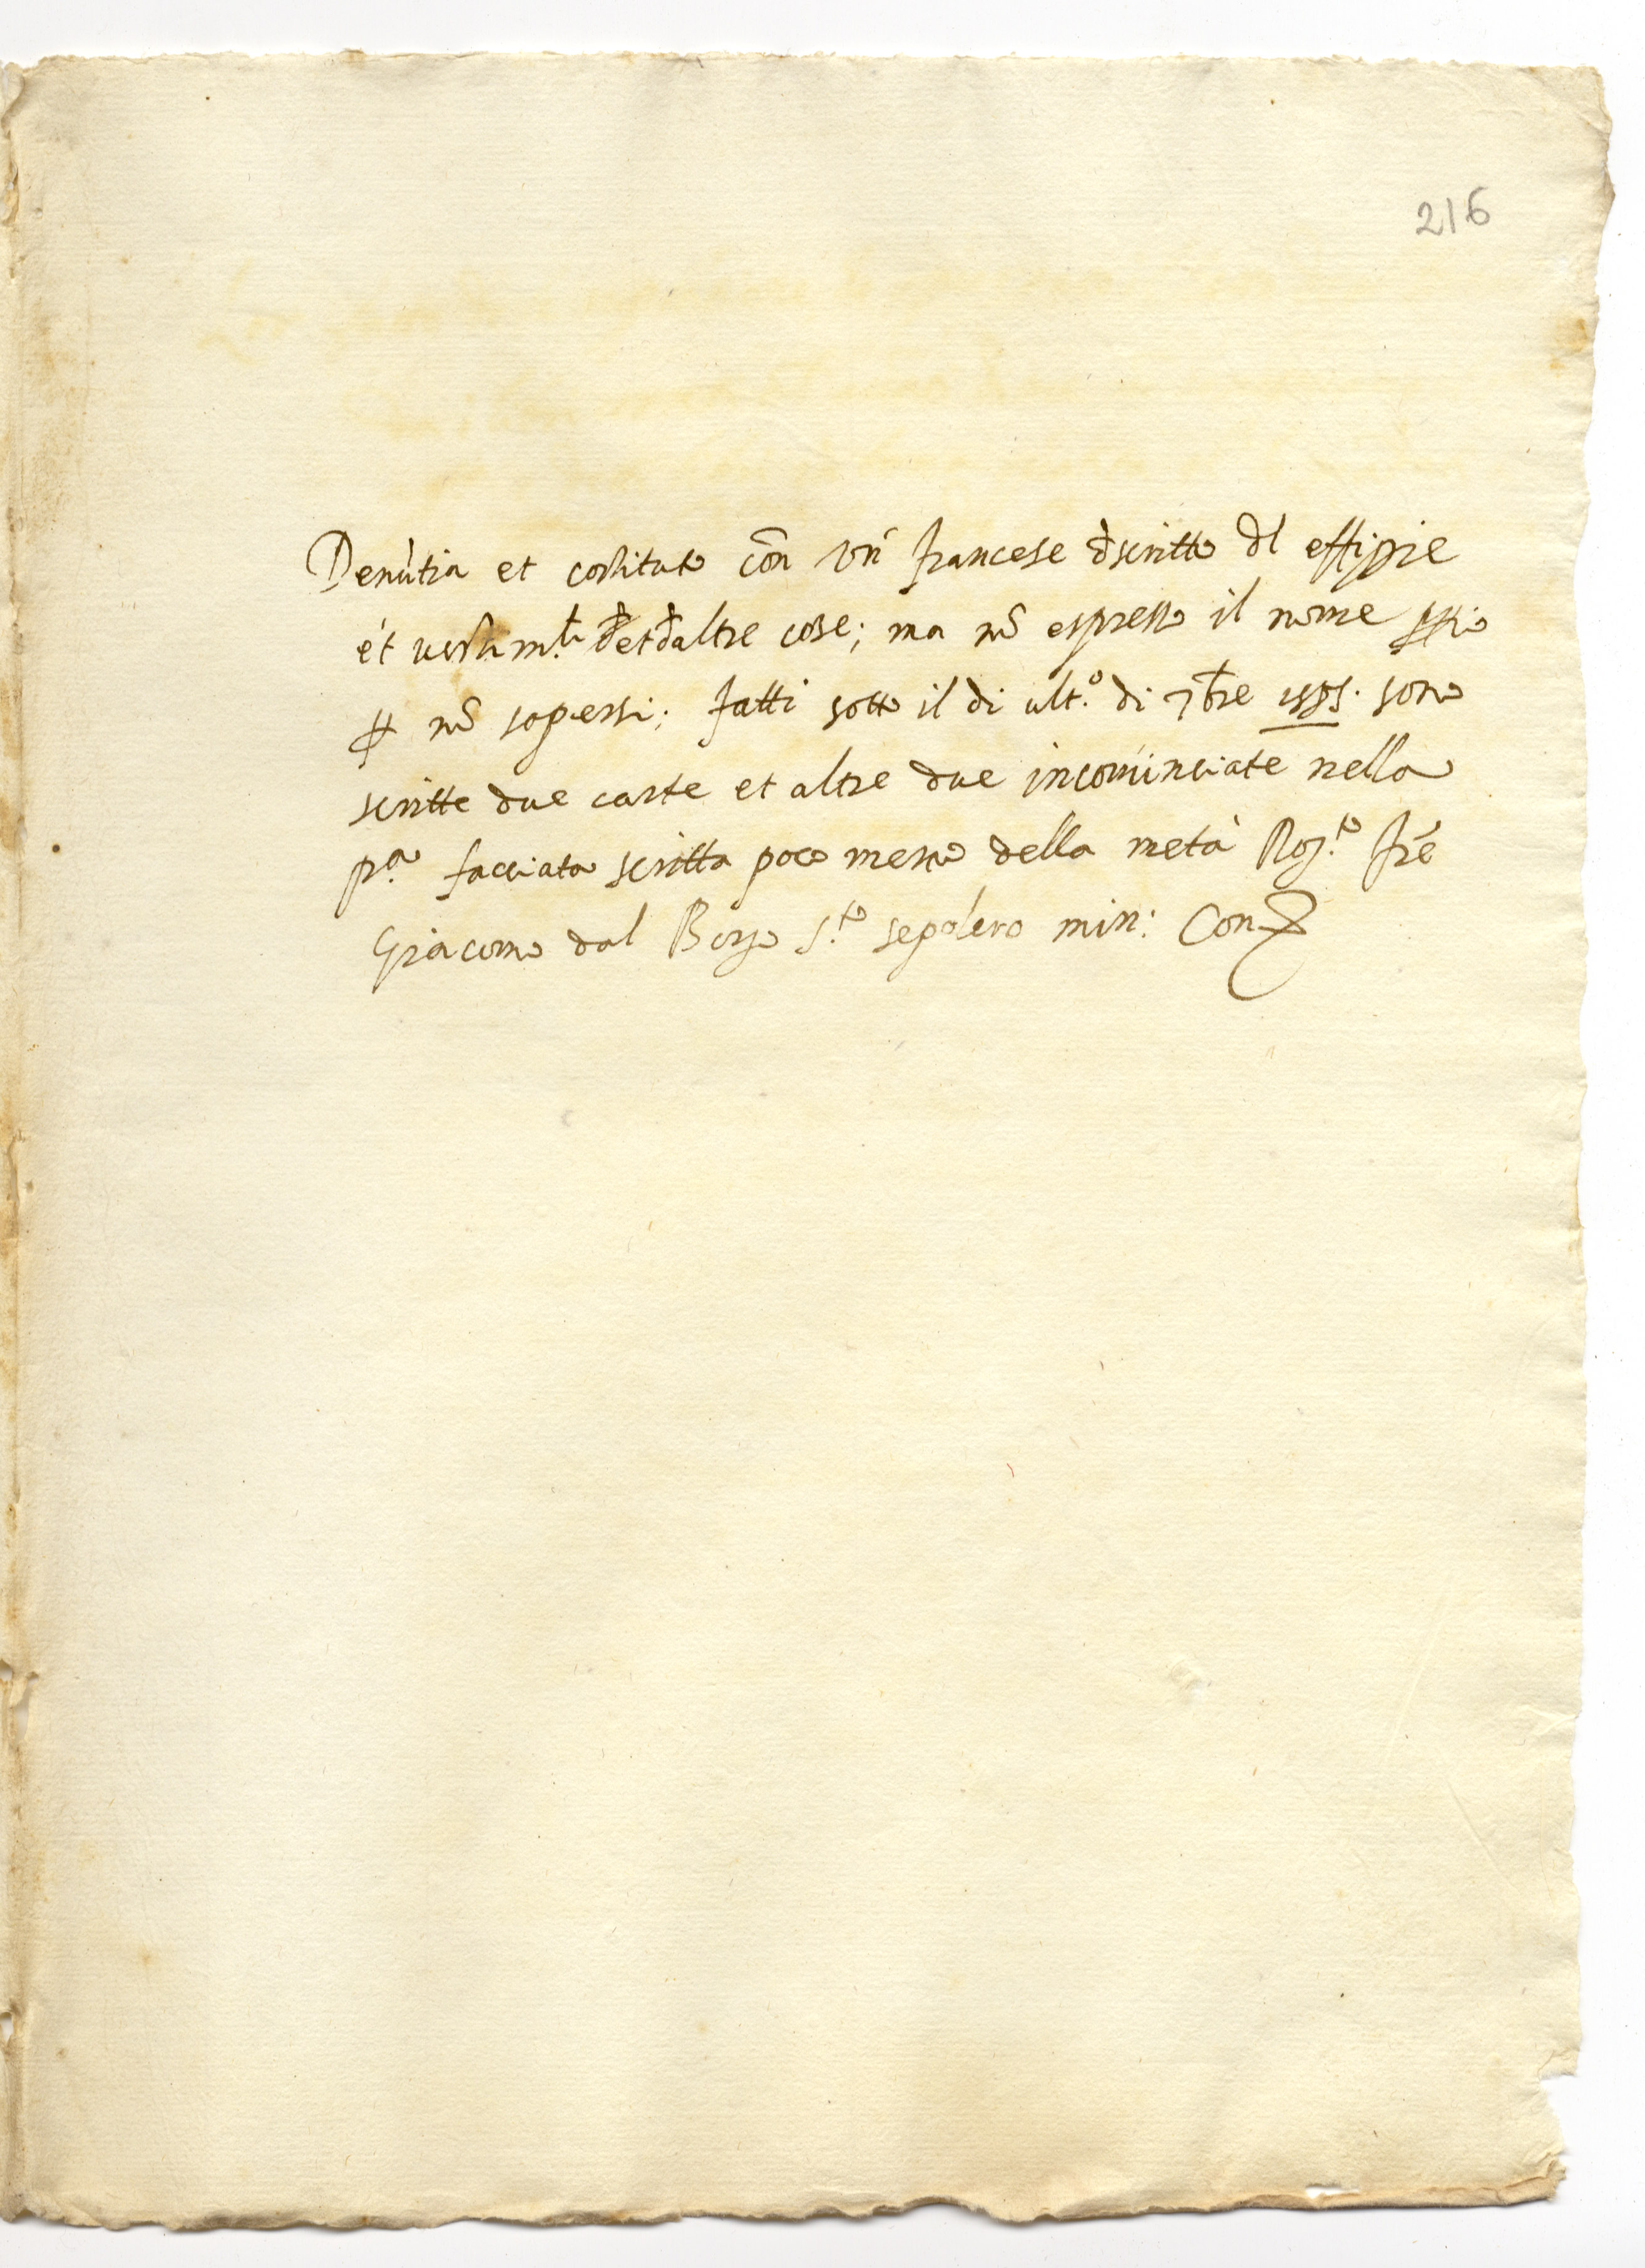 216
Denùtia et costituto cōn un' francese d̄scritto dl effigie
et vestim.ti d̄ et d̄ altre cose; ma nō espresso il nome ꝓprio
ꝑ nō sapersi; fatti sotto il di ult.o di 7bre sono
scritte due carte et altre due incomīnciate nella
p.a facciata scritta poco meno della metà Rog.to frē
Giacomo dal Borgo S.to sepolcro min: Con